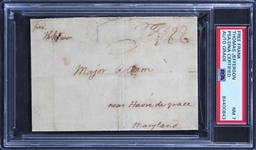 free
Major
near Havre de grace
Maryland
FREE FRANK
THOMAS JEFFERSON
PSA/DNA CERTIFIED
AUTO GRADE
NM 7
84400843
PSA